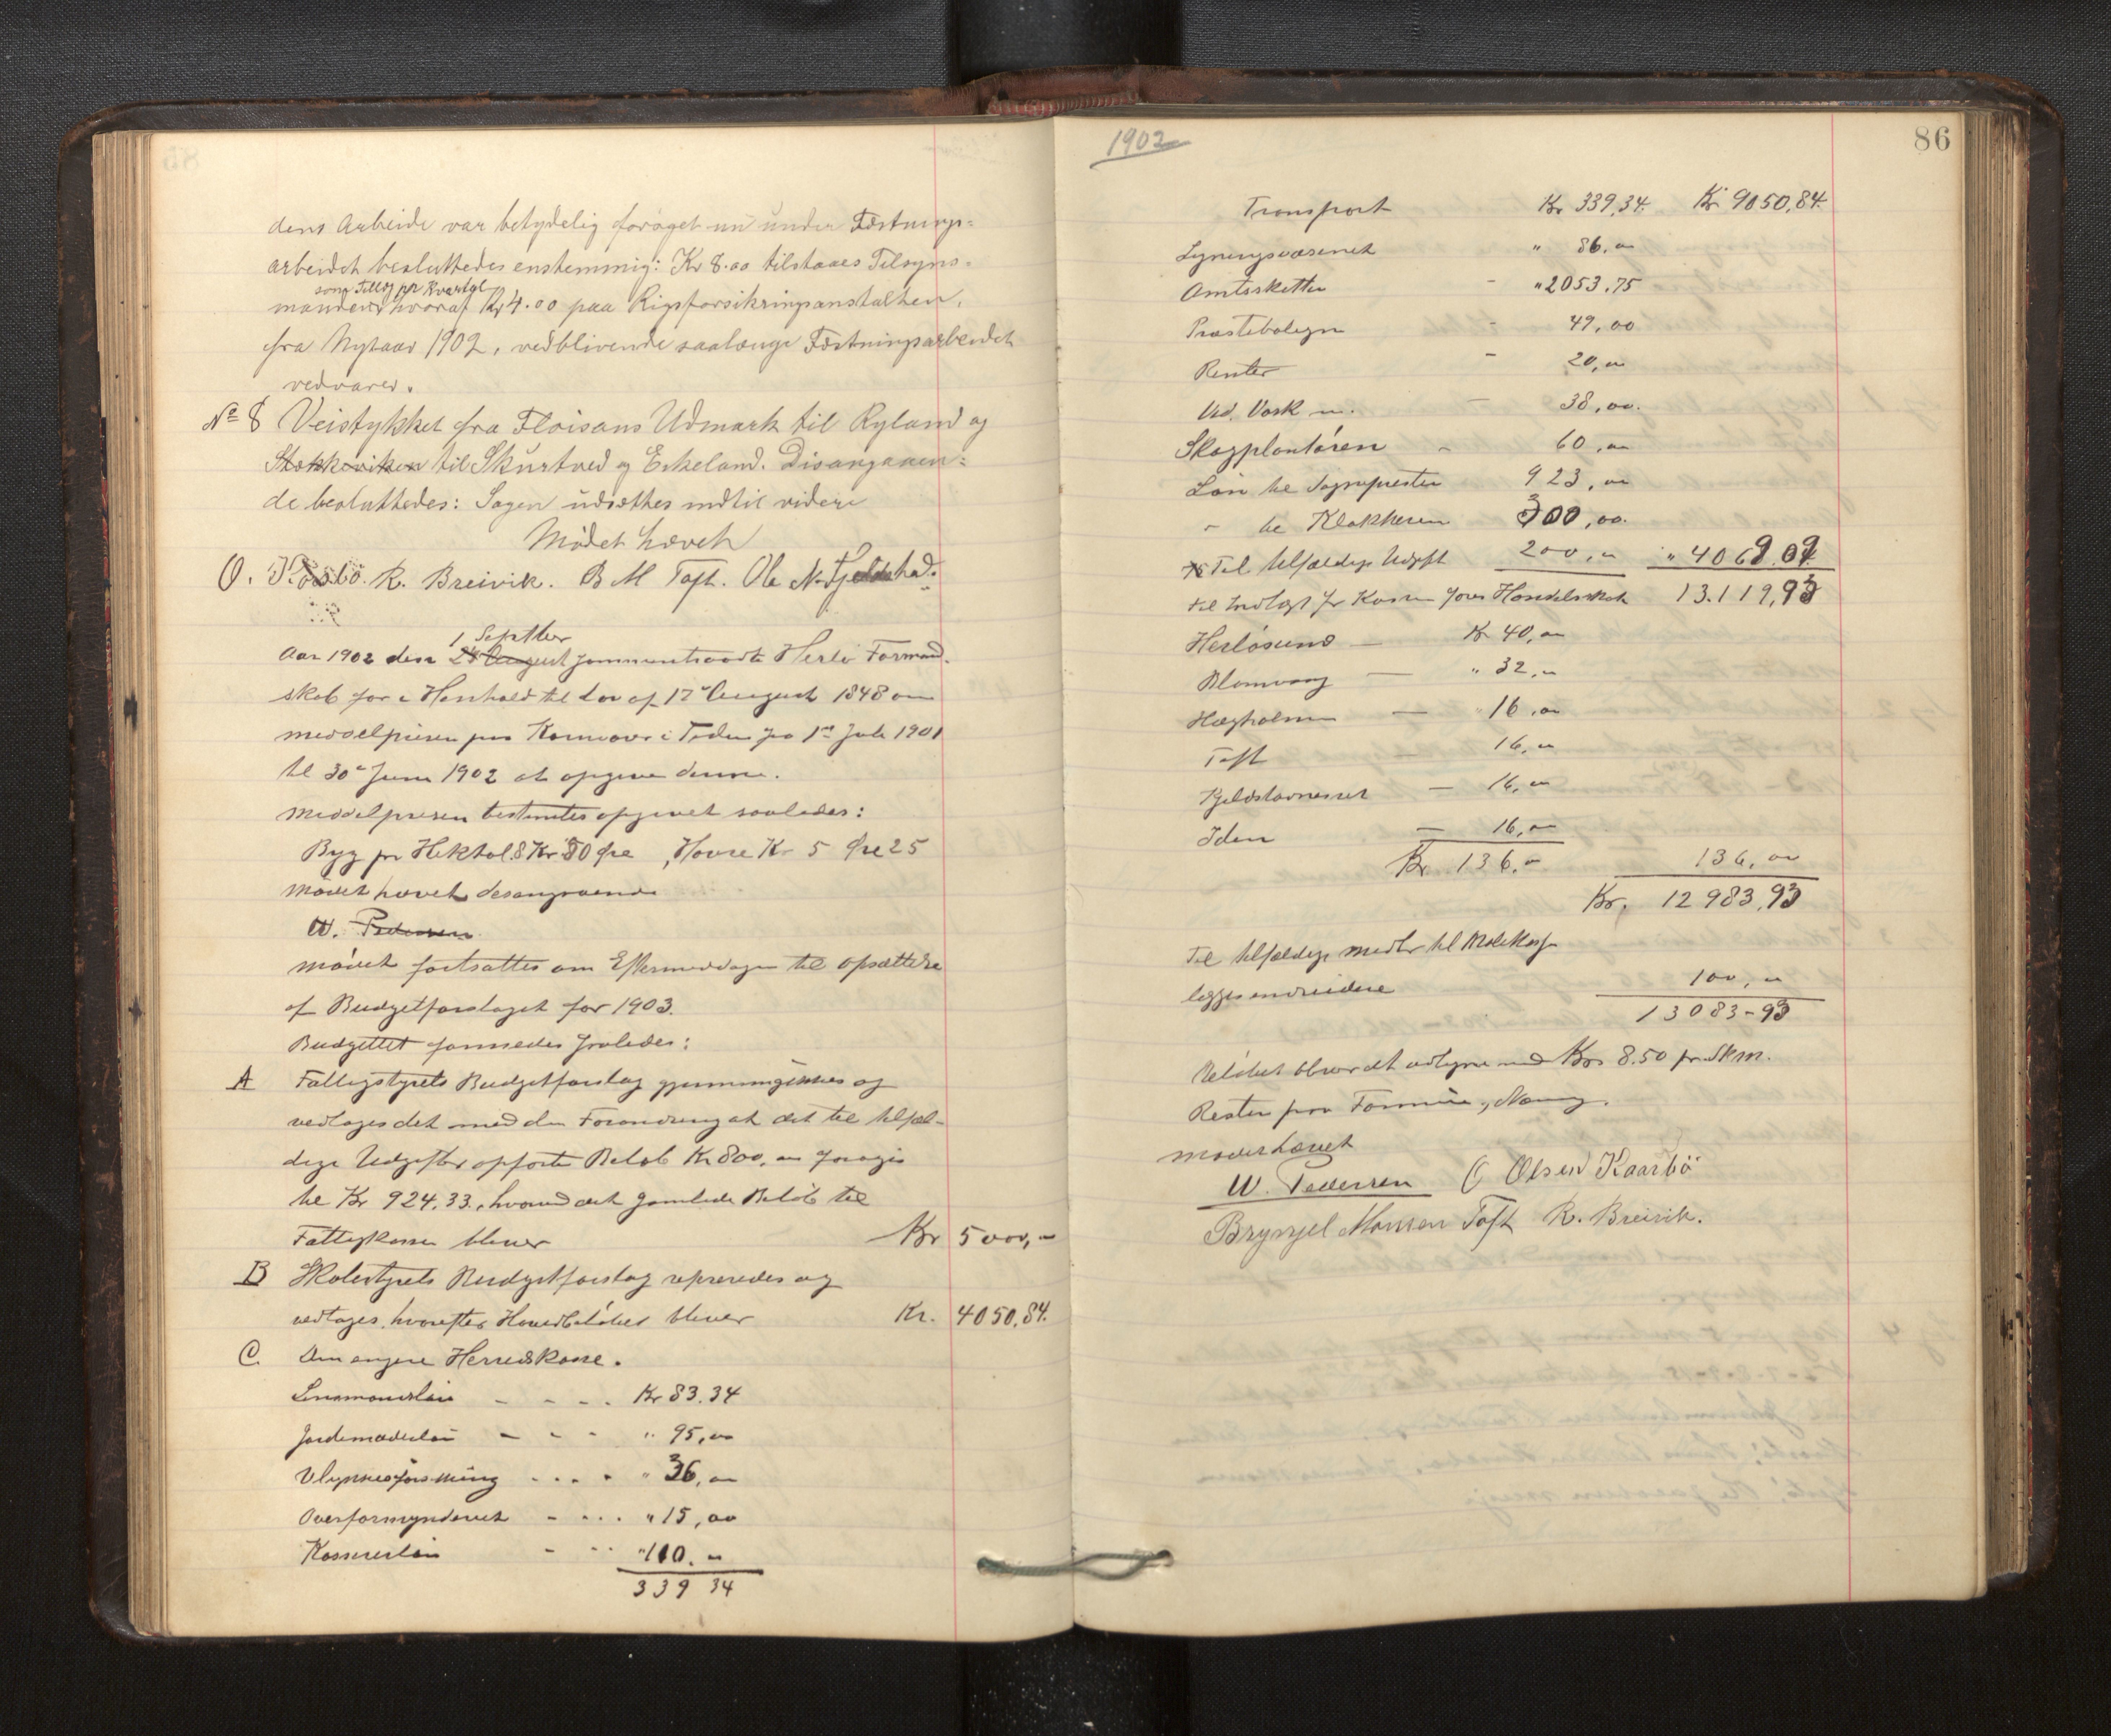 dens Arbeide var betydelig forøget nu under Fæstnings=
arbeidet besluttedes enstemmig: Kr 8.00 tilstaaes Tilsyns=
som Tillæg pr Kvartal
manden hvoraf Kr 4.00 paa Rigsforsikringsanstalten,
fra Nytaar 1902, vedblivende saalænge Fæstningsarbeidet
vedvarer.
No 8 Veistykket fra Floisans Udmark til Ryland og
Stokkeviken til Skurtved og Eikeland. Disangaaen=
de besluttedes: Sagen udsættes indtil videre
Mødet hævet
O. R. Breivik. B M Toft. Ole N. Fjeldstad.
1 Septbr
Aar 1902 den 28 August sammentraadte Herlø Formand-
skab for i Henhold til Lov af 17 August 1848 om
middelprisen paa Kornvarer i Tiden fra 1ste Juli 1901
til 30te Juni 1902 at opgive denne.
Middelprisen bestemtes opgivet saaledes:
Byg pr Hektol. 8 Kr 80 Øre, Havre Kr 5 Øre 25
Mødet hævet desangaaende
W. Pedersen
Mødet fortsattes om Eftermiddagen til opsættelse
af Budgetforslaget for 1903.
Budgettet formedes saaledes:
A Fattigstyrets Budgetforslag gjennemgikkes og
vedtoges det med den Forandring at det til tilfæl-
dige Udgifter opførte Beløb Kr 800,00 forøges
til Kr 924,33, hvorved det samlede Beløb til
Fattigkassen bliver Kr 5000,-
B Skolestyrets Budgetforslag refereredes og
vedtoges, hvorefter Hovedbeløbet bliver Kr. 4050,84.
C. Den egne Herredskasse.
Lensmandsløn - - - Kr 83.34
Jordemoderløn - - - " 95,00
Ulykkesforsikring . . . . " 36,00
Overformynderiet - . . . " 15,00
Kassererløn - . . . " 110.-
339 34
1902
86
Transport Kr 339,34. Kr 9050,84.
Ligningsvæsenet " 86.00
Amtsskatten - " 2053.75
Præstebolegen - 49,00
Renter - 20,00
Ved, Vask m. - 38,00.
Skogplantøren - 60,00
Løn til Sognepresten 923,00
" til Klokkeren 300,00.
Til tilfældige Udgift 200,00 " 4069.09
til Indtægt for Kassen fores Handelsskat 13.119,93
Herløsund - Kr 40,00
Blomvaag - " 32,00
Hægholmen - " 16,00
Toft - 16,00
Kjeldstavnesset - 16,00
Iden - 16,00
Kr 136,- 136,00
Kr. 12983,93
Til tilfældige midler til
lægges endvidere 100,00
13083-93
Beløbet bliver at udligne med Kr 8.50 pr. Skm.
Resten paa Formue & Næring.
Mødet hævet
W. Pedersen O Olsen Kaarbø
Brynjel Monsen Toft R. Breivik.